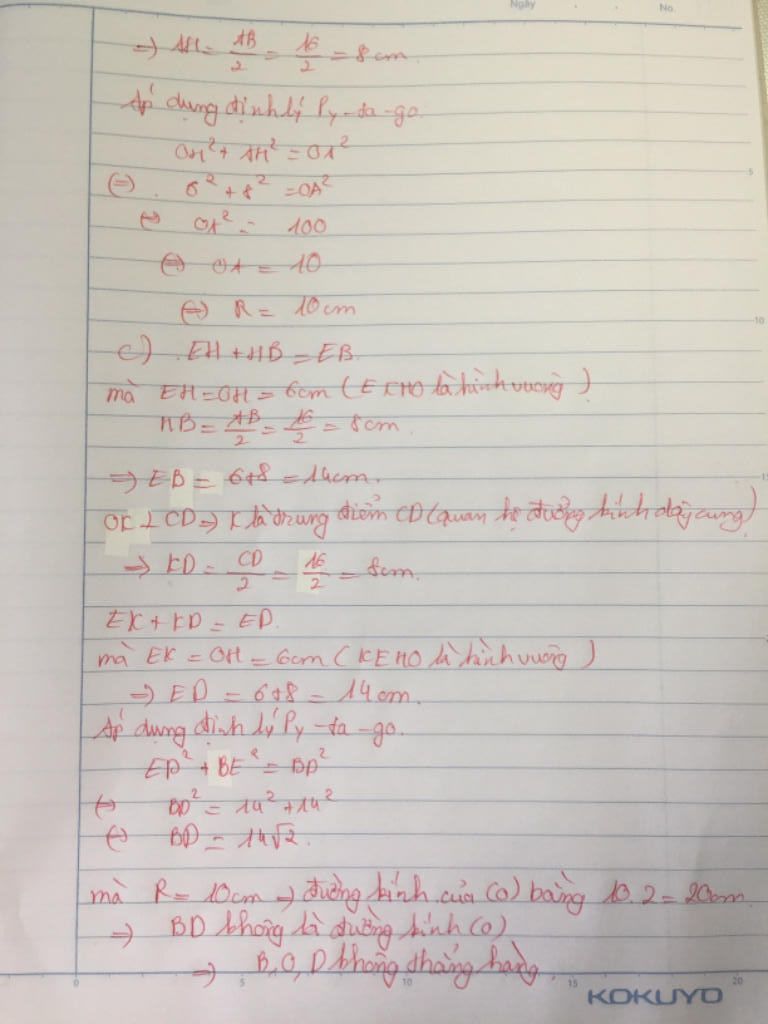 Ngày No.
=> AH = AB/2 = 16/2 = 8cm.
Áp dụng định lý Py-ta-go.
OH² + AH² = OA²
<=> 6² + 8² = OA²
<=> OA² = 100
<=> OA = 10
<=> R = 10cm
c) EH + HB = EB.
mà EH = OH = 6cm (EKHO là hình vuông)
HB = AB/2 = 16/2 = 8cm.
=> EB = 6+8 = 14cm.
OK ⊥ CD => K là trung điểm CD (quan hệ đường kính dây cung)
=> KD = CD/2 = 16/2 = 8cm.
EK + KD = ED.
mà EK = OH = 6cm (KEHO là hình vuông)
=> ED = 6+8 = 14cm.
Áp dụng định lý Py-ta-go.
ED² + BE² = BD²
<=> BD² = 14² + 14²
<=> BD = 14√2.
mà R = 10cm => đường kính của (O) bằng 10.2 = 20cm
=> BD không là đường kính (O)
=> B, O, D không thẳng hàng.
0 5 10 15 20
KOKUYO